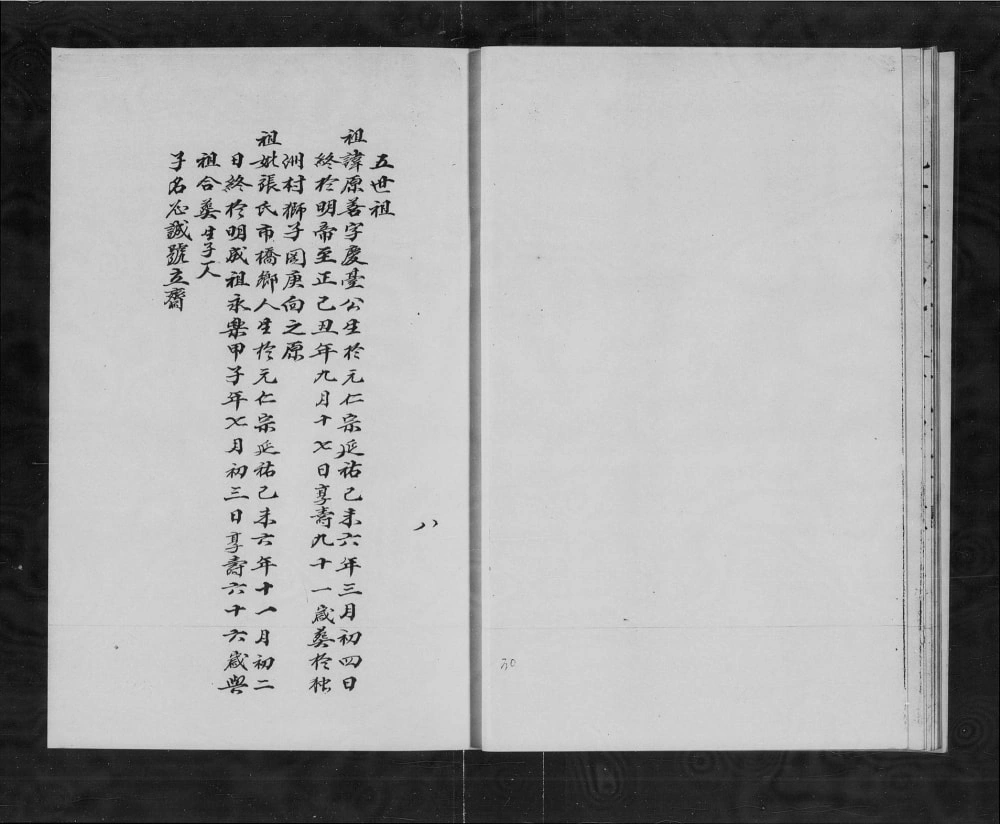 五世祖
祖諱原善字慶臺公生於元仁宗延祐己未六年三月初四日
終於明帝至正己丑年九月十七日享壽九十一歲葬於
洲村獅子岡庚向之原
祖妣張氏市橋鄉人生於元仁宗延祐己未六年十一月初二
日終於明成祖永樂甲子年七月初三日享壽六十六歲與
祖合葬生子一人
子名必誠號立齋
八
30